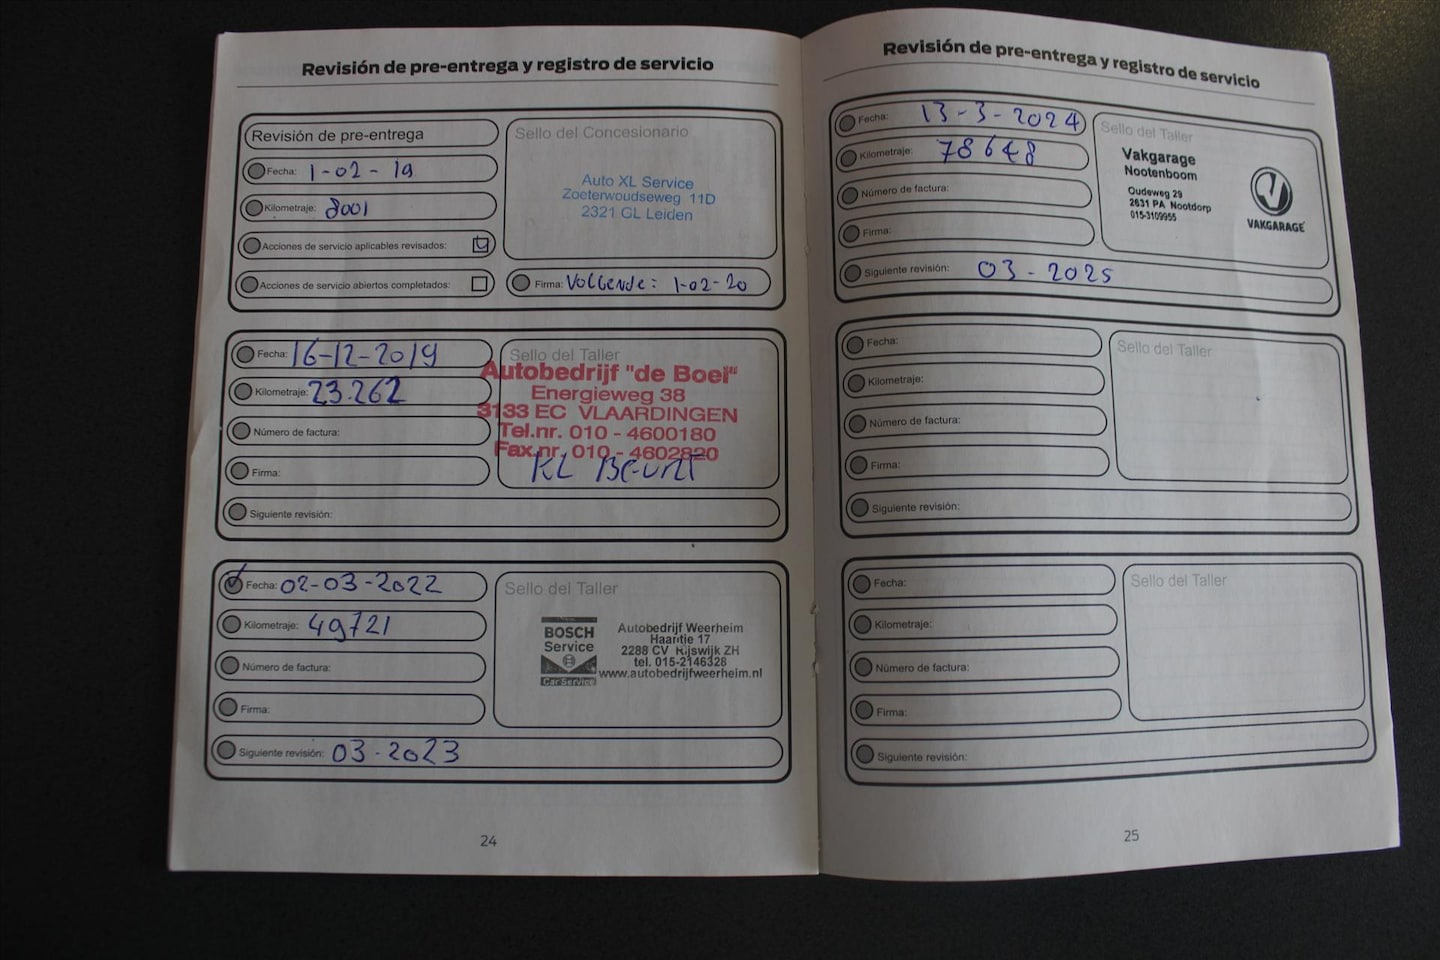 Revisión de pre-entrega y registro de servicio
Revisión de pre-entrega
Fecha: 1-02-19
Kilometraje: 8001
Acciones de servicio aplicables revisados:
Acciones de servicio abiertos completados:
Sello del Concesionario
Auto XL Service
Zoeterwoudseweg 11D
2321 GL Leiden
Firma: VOLGENDE: 1-02-20
Fecha: 16-12-2019
Kilometraje: 23.262
Número de factura:
Firma:
Siguiente revisión:
Sello del Taller
Autobedrijf "de Boei"
Energieweg 38
3133 EC VLAARDINGEN
Tel.nr. 010 - 4600180
Fax.nr. 010 - 4602820
KL BEURT
Fecha: 02-03-2022
Kilometraje: 49721
Número de factura:
Firma:
Siguiente revisión: 03-2023
Sello del Taller
BOSCH
Service
Car Service
Autobedrijf Weerheim
Haantje 17
2288 CV Rijswijk ZH
tel. 015-2146328
www.autobedrijfweerheim.nl
24
Revisión de pre-entrega y registro de servicio
Fecha: 13-3-2024
Kilometraje: 78648
Número de factura:
Firma:
Siguiente revisión: 03-2025
Sello del Taller
Vakgarage
Nootenboom
Oudeweg 29
2631 PA Nootdorp
015-3109955
VAKGARAGE
Fecha:
Kilometraje:
Número de factura:
Firma:
Siguiente revisión:
Sello del Taller
Fecha:
Kilometraje:
Número de factura:
Firma:
Siguiente revisión:
Sello del Taller
25